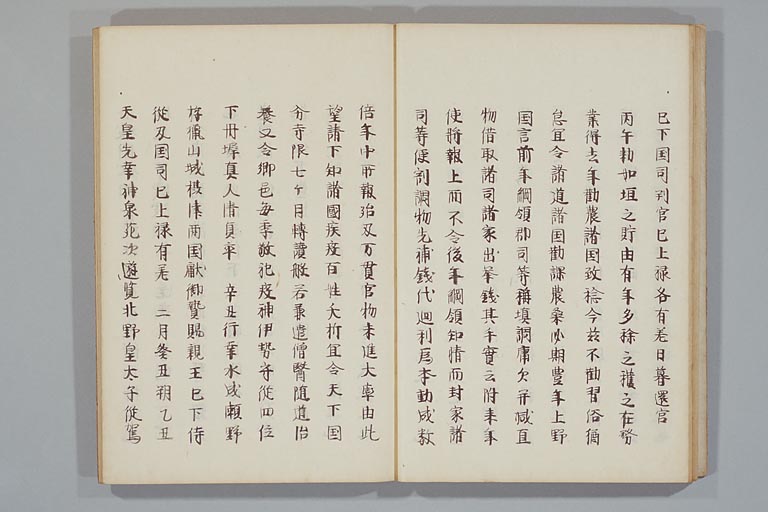 已下国司判官已上禄各有差日暮還宮
丙午勅如垣之貯由有年多稌之礼之在務
業得去年勧農諸国致稔今茲不勧習俗獨
怠宜令諸道諸国勧課農桑必期豊年上野
国言前年綱領郡司等稱填調庸欠并減直
物借取諸司諸家出挙銭其手實云附来年
使將報上而不令後年綱領知情而封家諸
司等使割調物先補銭代廻利為本動成数
倍年中所報殆及万貫官物未進大率由此
望請下知諸國疾疫百姓夭折宜令天下国
分寺限七ヶ日轉讀般若兼遣僧醫随道治
養又令郷邑毎季敬祀疫神伊勢守従四位
下丹墀真人清貞卒 辛丑行幸水成瀬野
狩猟山城摂津両国獻御贄賜親王已下侍
従及国司已上禄有差 二月癸丑朔乙丑
天皇先幸神泉苑次遊覧北野皇太子従駕